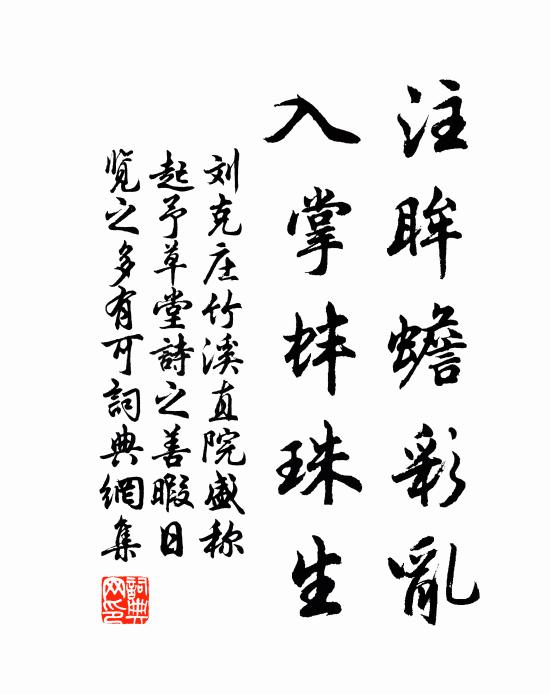 注眸蟾彩亂
入掌蚌珠生
刘克庄竹溪直院盛称
起予草堂詩之善暇日
覧之多有可詞典網集
詞典
网印